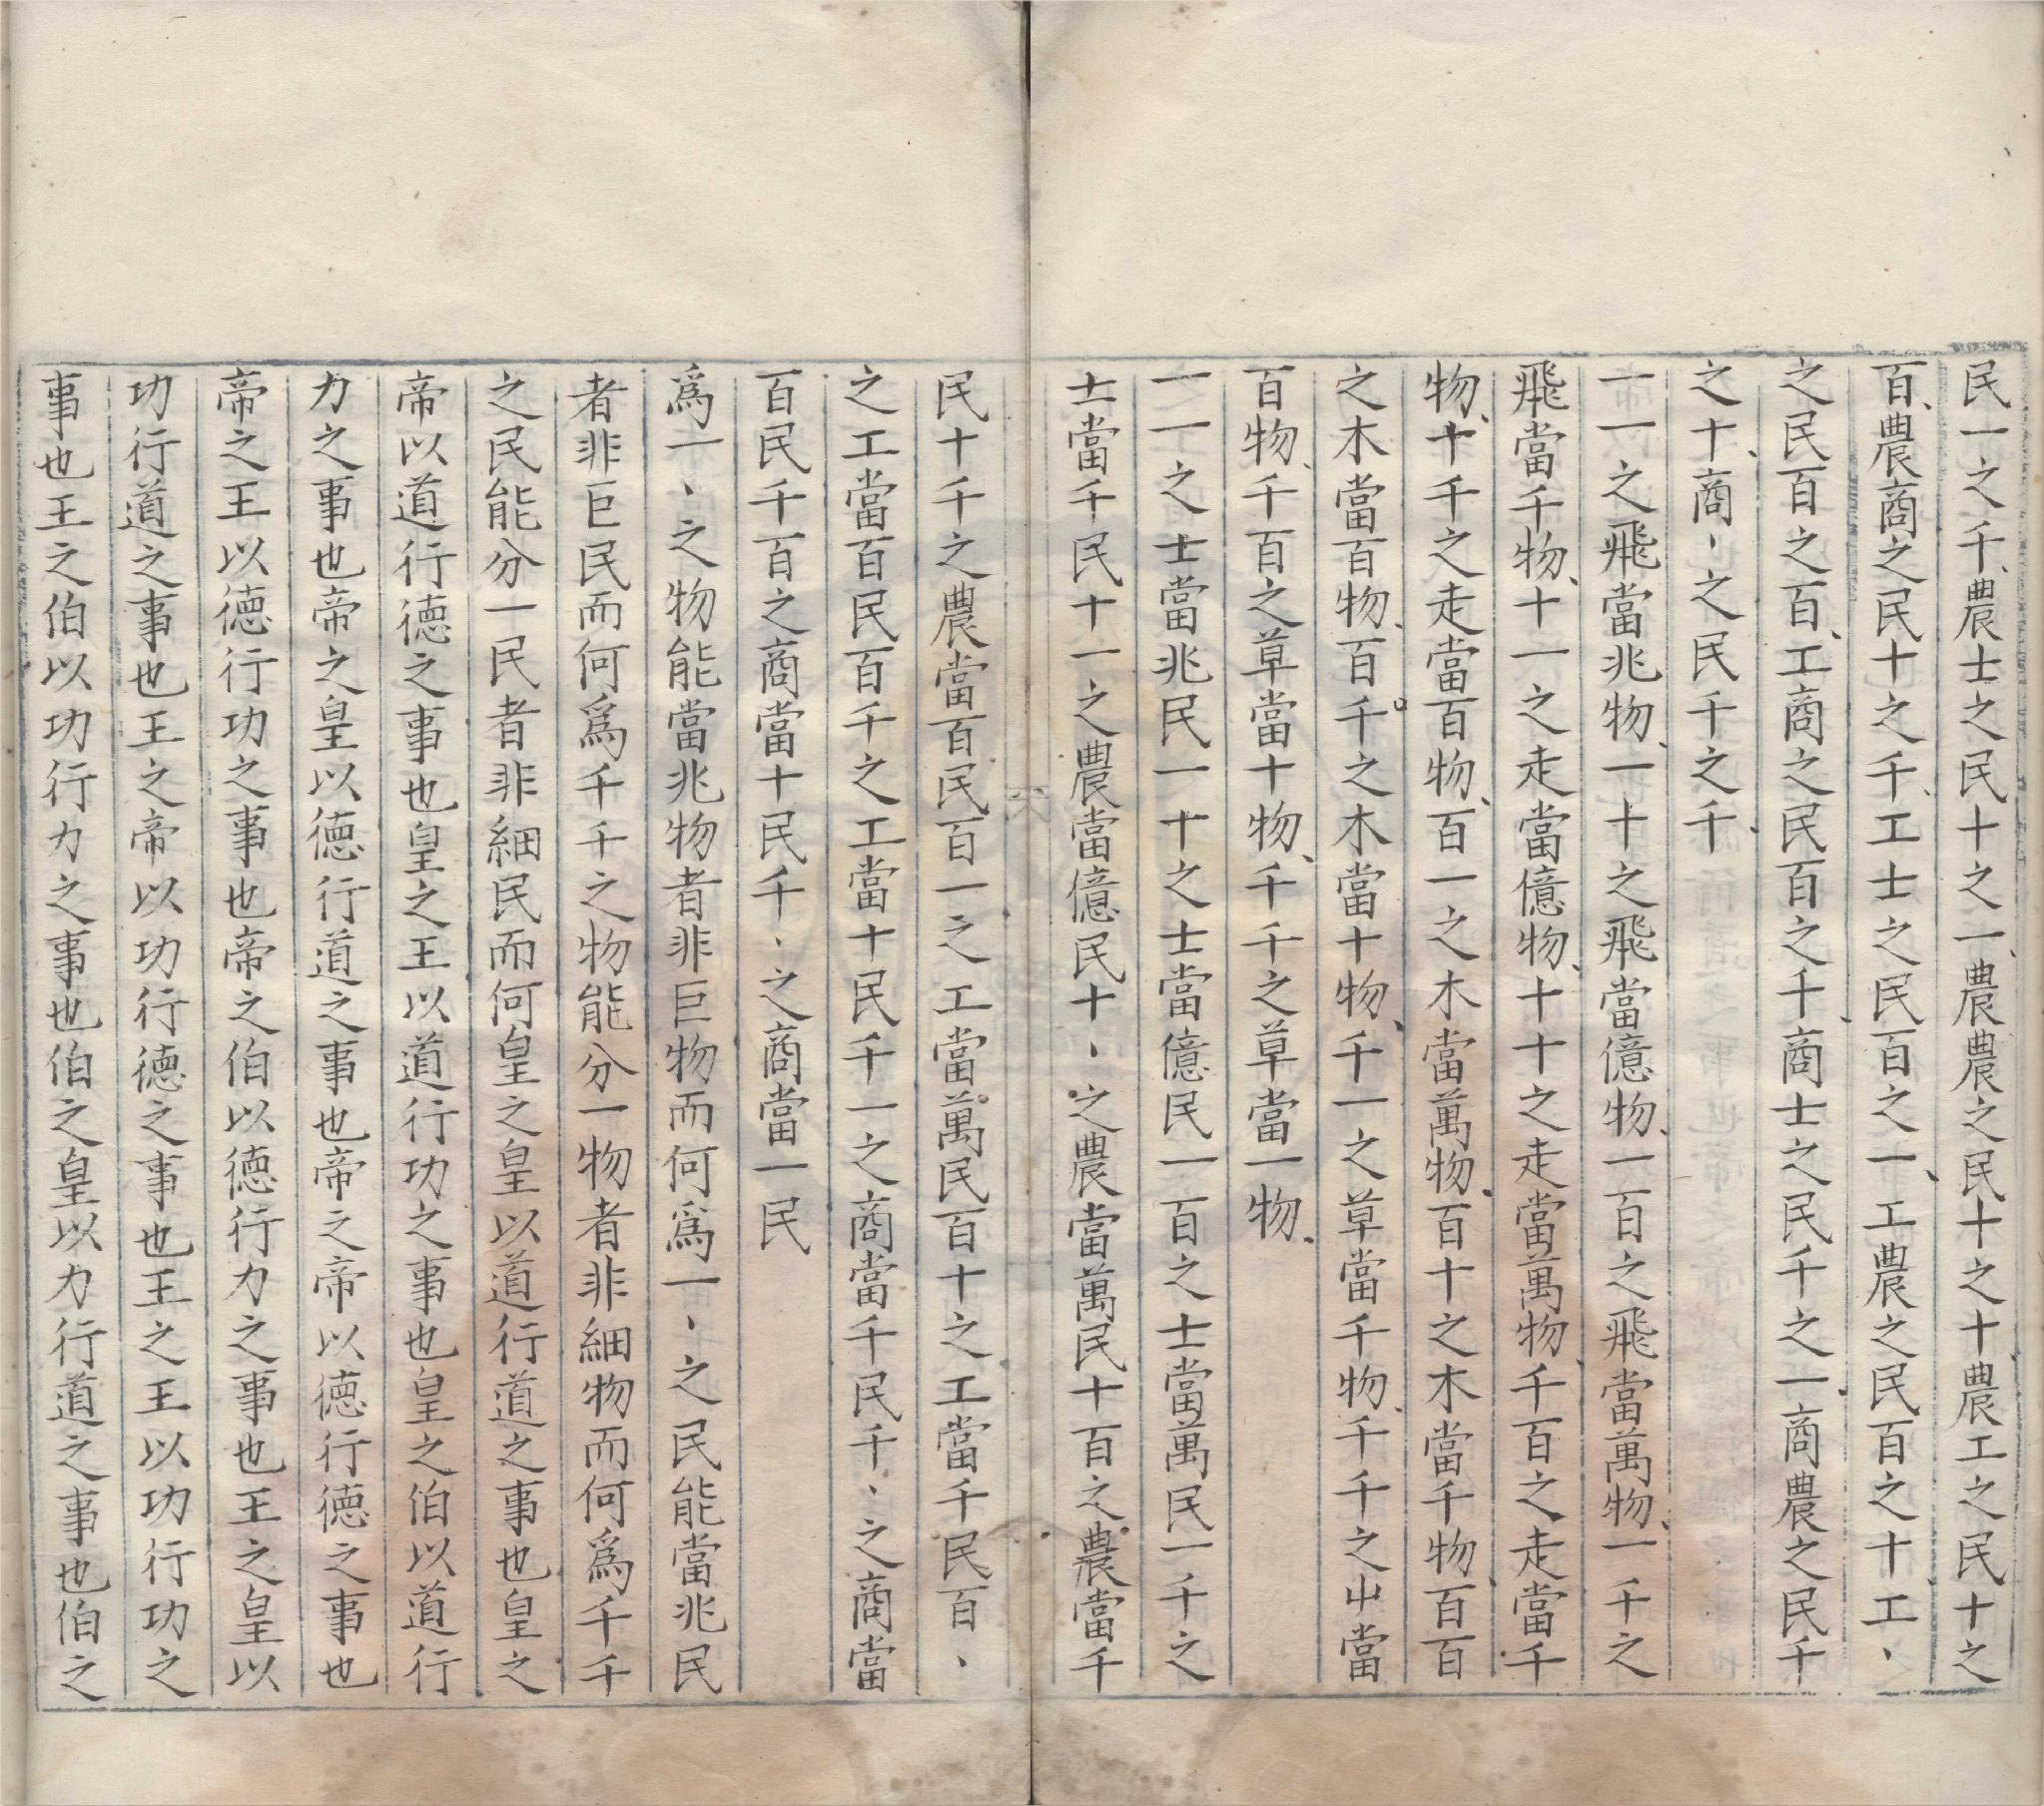 民一之千農士之民十之一農農之民十之十農工之民十之
百農商之民十之千工士之民百之一工農之民百之十工、
之民百之百工商之民百之千商士之民千之一商農之民千
之十商、之民千之千
一一之飛當兆物一十之飛當億物一百之飛當萬物一千之
飛當千物十一之走當億物十十之走當萬物千百之走當千
物十千之走當百物百一之木當萬物百十之木當千物百百
之木當百物百千之木當十物千一之草當千物千千之屮當
百物千百之草當十物千千之草當一物
一一之士當兆民一十之士當億民一百之士當萬民一千之
士當千民十一之農當億民十、之農當萬民十百之農當千
民十千之農當百民百一之工當萬民百十之工當千民百、
之工當百民百千之工當十民千一之商當千民千、之商當
百民千百之商當十民千、之商當一民
爲一、之物能當兆物者非巨物而何爲一、之民能當兆民
者非巨民而何爲千千之物能分一物者非細物而何爲千千
之民能分一民者非細民而何皇之皇以道行道之事也皇之
帝以道行德之事也皇之王以道行功之事也皇之伯以道行
力之事也帝之皇以德行道之事也帝之帝以德行德之事也
帝之王以德行功之事也帝之伯以德行力之事也王之皇以
功行道之事也王之帝以功行德之事也王之王以功行功之
事也王之伯以功行力之事也伯之皇以力行道之事也伯之